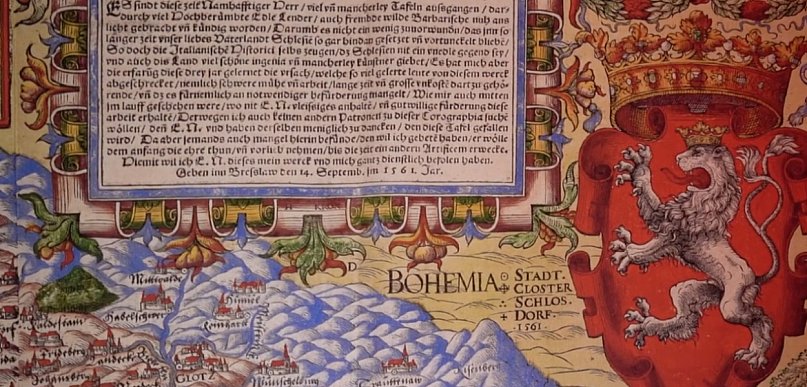 Es sindt diese zeit Namhafftiger Herr / viel vñ mancherley Tafeln ausgangen / dar
durch viel Hochberümbte Edle Lender / auch frembde wilde Barbarische
licht gebracht vñ kündig worden / Darumb es nicht ein wenig zuvorwundn / das jnn so
langer zeit vnser liebes Vaterland Schlesie so gar hindan gesetzet vñ vortunckelt bliebē /
So doch die Italianische Historici selbs zeugen / dz Schlesien nit ein vnedle gegend sey /
vnd auch dis Land viel schöne ingenia vñ mancherley künstner giebet / Es hat mich aber
die erfarūg diese drey jar gelernet die vrsach / welche so viel gelerte leute von diesem werck
abgeschrecket / nemlich schwere mühe vñ arbeit / lange zeit vñ grosse vnkost dartzu gehö
rig / vñ das es fürnemlich an notwendiger befürderung mangelt / Wie mir auch mitten
jm lauff geschehen were / wo nit E. N. vleissiges anhaltē / vñ gutwillige fürderung diese
arbeit erhaltē / Derwegen ich auch keinen andern Patronen zu dieser Corographia suchē
wöllen / deñ E. N. vnd haben derselben meniglich zu dancken / den diese Tafel gefallen
wird / Da aber jemands auch mangel hierin befünde / den wil ich gebetē haben / er wölle
dem anfang die ehre thun / vñ vorlieb nehmen / bis die zeit ein andern Artificem erwecke.
Hiemit wil ich E. N. dieses mein werck vnd mich gantz dienstlich befolen haben.
Geben inn Breslaw den 14. Septemb. jm 1561. Jar.
H KRON
D
BOHEMIA
STADT.
CLOSTER
SCHLOS.
+ DORF.
·1561·
Mittwalde
Habelschwer
Himmel
Leonhard
Waldstain
Frideberg
Landeck
Johansberg
GLOTZ
Wünschelburg
Trauttnaw
Eisenberg